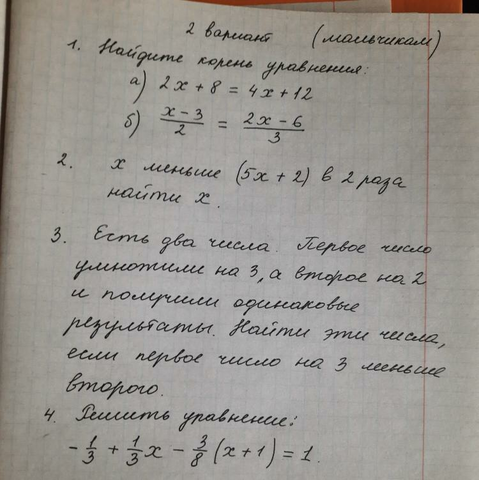 2 вариант (мальчикам)
1. Найдите корень уравнения:
а) 2x + 8 = 4x + 12
б) (x - 3)/2 = (2x - 6)/3
2. x меньше (5x + 2) в 2 раза
найти x.
3. Есть два числа. Первое число
умножили на 3, а второе на 2
и получили одинаковые
результаты. Найти эти числа,
если первое число на 3 меньше
второго.
4. Решить уравнение:
- 1/3 + 1/3 x - 3/8 (x + 1) = 1.